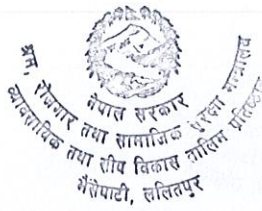 नेपाल सरकार
श्रम, रोजगार तथा सामाजिक सुरक्षा मन्त्रालय
व्यावसायिक तथा सीप विकास तालिम प्रतिष्ठान
भैंसेपाटी, ललितपुर